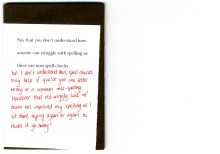 Say that you don't understand how
anyone can struggle with spelling as
there are now spell checks.
No! I don't understand this, spell checks
only help if you've got one letter
wrong or a common miss-spelling
However that red squiggly line of
doom has improved my spelling as I
sit there trying again & again to
make it go away!